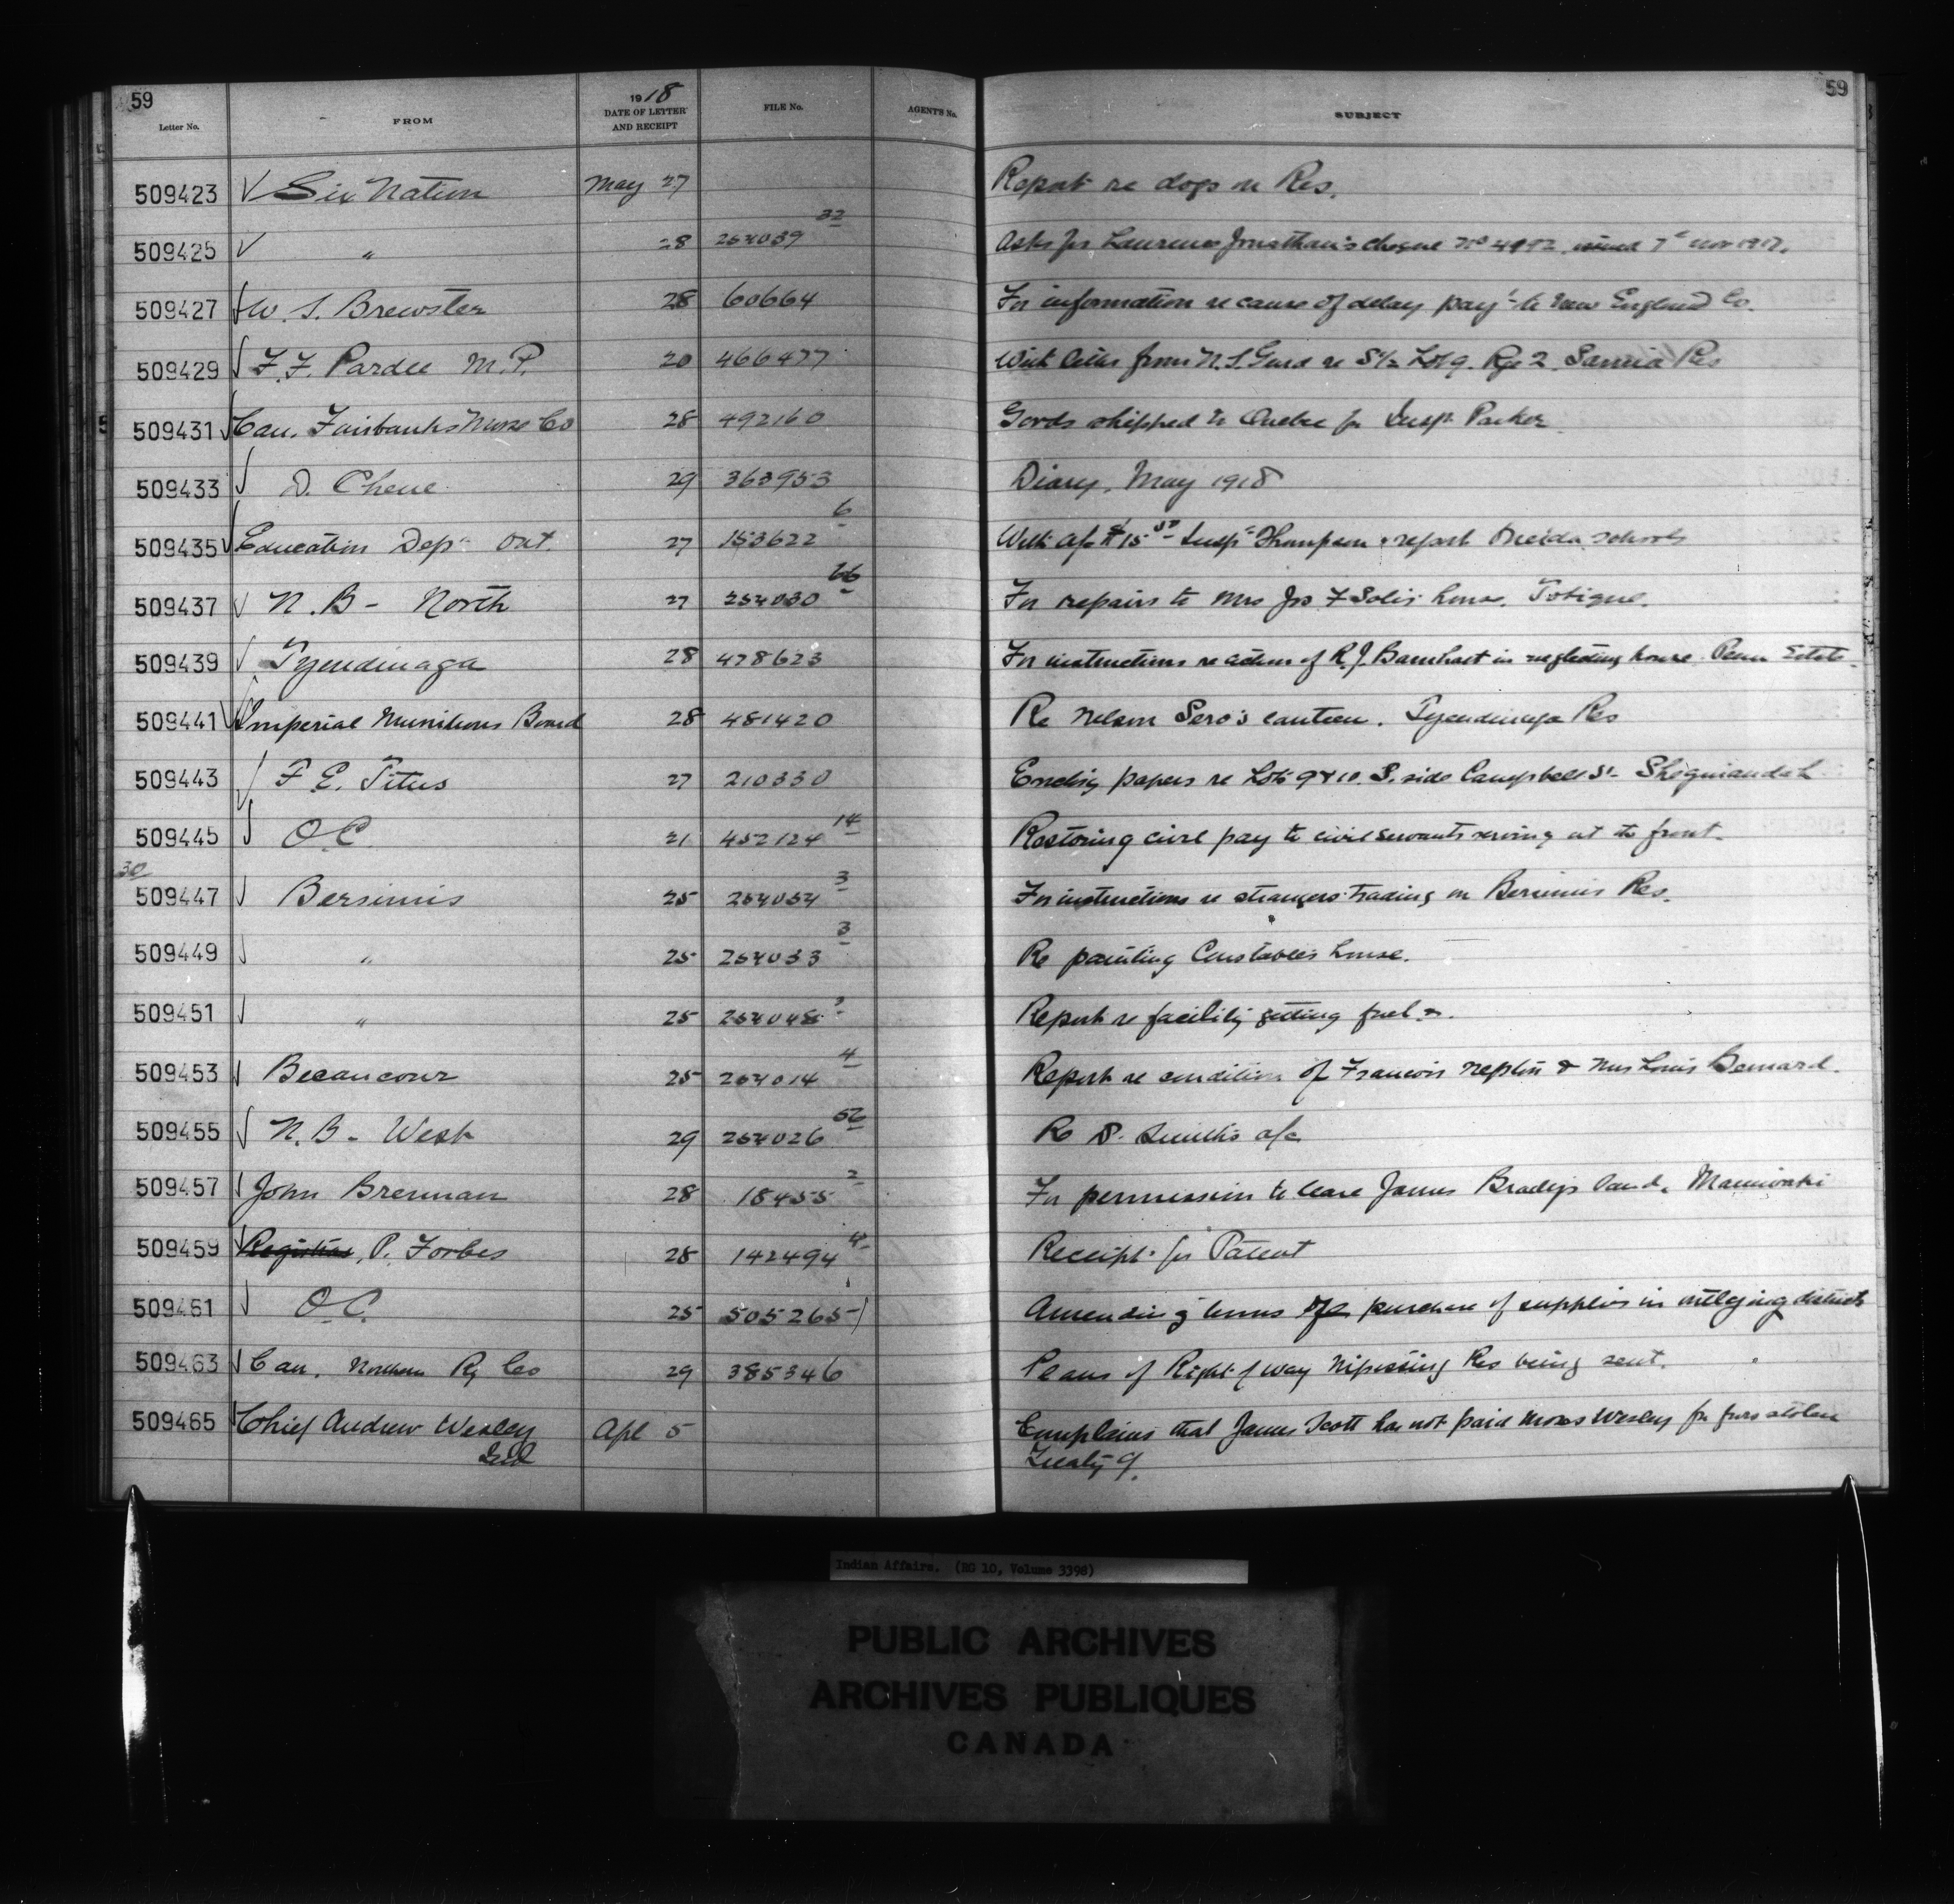 59
59
Letter No. FROM 1918 DATE OF LETTER AND RECEIPT FILE No. AGENT'S No. SUBJECT
509423 √ Six Nation May 27 Report re dogs on Res.
509425 √ " 28 254039 32 Asks for Laurence Jonathan's cheque No issued 7th Nov 1917.
509427 √ W. S. Brewster 28 60664 For information re cause of delay pay't to New England Co.
509429 √ F. F. Pardee M.P. 20 466477 With letter from N. S. Gurd re S½ Lot 9. Rge 2. Sarnia Res
509431 √ Can. Fairbanks Morse Co 28 492160 Goods shipped to Quebec for Insp. Parker
509433 √ D. Chene 29 363953 Diary, May 1918
509435 √ Education Dept Ont. 27 153622 6 With a/c $15 Inspr Thompson & report Oneida schools
509437 √ N.B - North 27 254030 66 For repairs to Mrs Jos F Solis house. Tobique.
509439 √ Tyendinaga 28 478623 For instructions re action of R. J. Barnhart in neglecting house Penn Estate.
509441 √ Imperial Munitions Board 28 481420 Re Nelson Sero's canteen. Tyendinaga Res
509443 √ F E. Titus 27 210330 Encling papers re Lots 9 & 10. S. side Campbell St - Sheguiandah
509445 √ O.C. 21 452124 14 Restoring civil pay to civil servants serving at the front.
30
509447 √ Bersimis 25 254054 3 For instructions re strangers trading on Bersimis Res.
509449 √ " 25 254033 3 Re painting Constable's house.
509451 √ " 25 Report re facility getting fuel &.
509453 √ Becancour 25 254014 4 Report re condition of Francois Neptin & Mrs Louis Bernard.
509455 √ N.B - West 29 254026 52 Re S. Smith's a/c
509457 √ John Brennan 28 18455 2 For permission to lease James Brady's land, Maniwaki
509459 √ Registrar, P. Forbes 28 142494 4 Receipt for Patent
509461 √ O.C. 25 505265-1 Amending terms purchase of supplies in outlying districts
509463 √ Can. Northern Ry Co 29 385346 Plans of Right of way Nipissing Res being sent.
509465 √ Chief Andrew Wesley Apl 5 Complains that James Scott has not paid Moses Wesley for furs stolen
Ind
Treaty 9.
Indian Affairs. (RG 10, Volume 3398)
PUBLIC ARCHIVES
ARCHIVES PUBLIQUES
CANADA